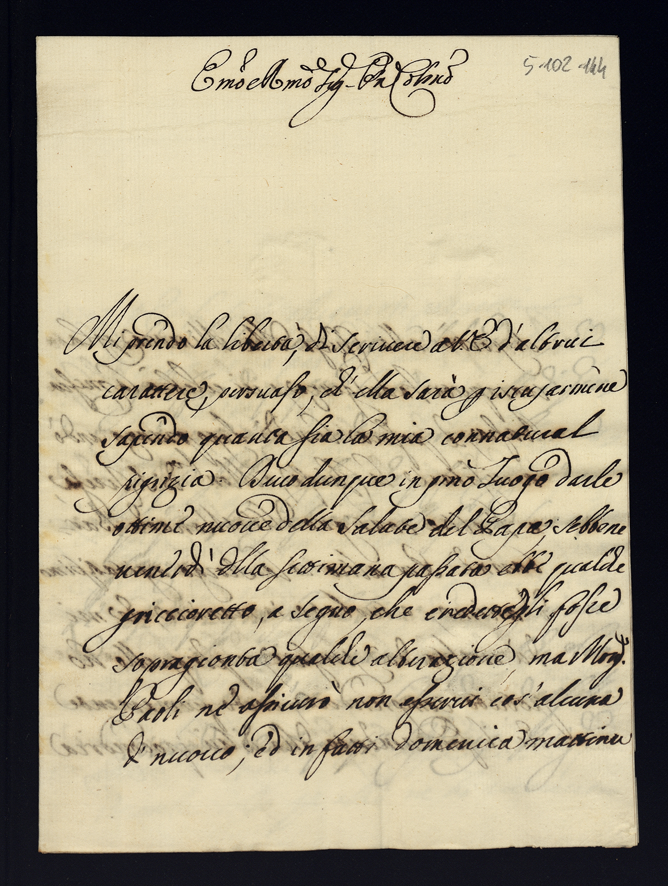 5-102-144
Emo e Rmo Sig.r Prn Colmo
Mi prendo la libertà, di scrivere a V.E. d'altrui
carattere, persuaso, ch'ella sarà p iscusarmene
sapendo quanta sia la mia connatural
pigrizia. Duo dunque in pmo Luogo darle
ottime nuove della salute del Papa, sebbene
venerdì della settimana passata ebbe qualche
griccioretto, a segno, che credettesi fosse
sopragionta qualche alterazione, ma Mons.r
Paoli ne assicurò non esservi cos'alcuna
di nuovo, ed in fatti domenica mattina